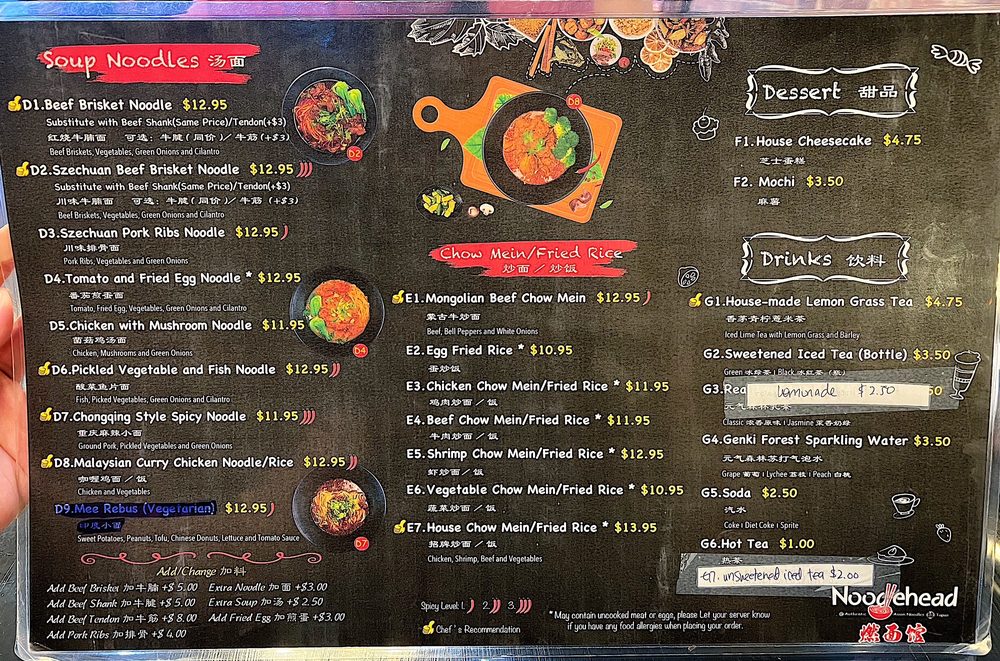 Soup Noodles 汤面
D1.Beef Brisket Noodle $12.95
Substitute with Beef Shank(Same Price)/Tendon(+$3)
红烧牛腩面 可选：牛腱（同价）/ 牛筋（+$3）
Beef Briskets, Vegetables, Green Onions and Cilantro
D2.Szechuan Beef Brisket Noodle $12.95
Substitute with Beef Shank(Same Price)/Tendon(+$3)
川味牛腩面 可选：牛腱（同价）/ 牛筋（+$3）
Beef Briskets, Vegetables, Green Onions and Cilantro
D3.Szechuan Pork Ribs Noodle $12.95
川味排骨面
Pork Ribs, Vegetables and Green Onions
D4.Tomato and Fried Egg Noodle * $12.95
番茄煎蛋面
Tomato, Fried Egg, Vegetables, Green Onions and Cilantro
D5.Chicken with Mushroom Noodle $11.95
菌菇鸡汤面
Chicken, Mushrooms and Green Onions
D6.Pickled Vegetable and Fish Noodle $12.95
酸菜鱼片面
Fish, Picked Vegetables, Green Onions and Cilantro
D7.Chongqing Style Spicy Noodle $11.95
重庆麻辣小面
Ground Pork, Pickled Vegetables and Green Onions
D8.Malaysian Curry Chicken Noodle/Rice $12.95
咖喱鸡面 / 饭
Chicken and Vegetables
D9.Mee Rebus (Vegetarian) $12.95
印度小面
Sweet Potatoes, Peanuts, Tofu, Chinese Donuts, Lettuce and Tomato Sauce
Add/Change 加料
Add Beef Brisket 加牛腩 +$ 5.00 Extra Noodle 加面 +$3.00
Add Beef Shank 加牛腱 +$ 5.00 Extra Soup 加汤 +$ 2.50
Add Beef Tendon 加牛筋 +$ 8.00 Add Fried Egg 加煎蛋 +$3.00
Add Pork Ribs 加排骨 +$ 4.00
D2
D4
D7
D8
Chow Mein/Fried Rice
炒面 / 炒饭
E1.Mongolian Beef Chow Mein $12.95
蒙古牛炒面
Beef, Bell Peppers and White Onions
E2.Egg Fried Rice * $10.95
蛋炒饭
E3.Chicken Chow Mein/Fried Rice * $11.95
鸡肉炒面 / 饭
E4.Beef Chow Mein/Fried Rice * $11.95
牛肉炒面 / 饭
E5.Shrimp Chow Mein/Fried Rice * $12.95
虾炒面 / 饭
E6.Vegetable Chow Mein/Fried Rice * $10.95
蔬菜炒面 / 饭
E7.House Chow Mein/Fried Rice * $13.95
招牌炒面 / 饭
Chicken, Shrimp, Beef and Vegetables
Spicy Level: 1. 2. 3.
Chef's Recommendation
* May contain uncooked meat or eggs, please Let your server know
if you have any food allergies when placing your order.
Dessert 甜品
F1.House Cheesecake $4.75
芝士蛋糕
F2. Mochi $3.50
麻薯
Drinks 饮料
G1.House-made Lemon Grass Tea $4.75
香茅青柠薏米茶
Iced Lime Tea with Lemon Grass and Barley
G2.Sweetened Iced Tea (Bottle) $3.50
Green 冰绿茶 | Black 冰红茶（瓶）
G3.Rea
Lemonade $2.50
50
Classic 浓香原味 | Jasmine 茉香奶绿
G4.Genki Forest Sparkling Water $3.50
元气森林苏打气泡水
Grape 葡萄 | Lychee 荔枝 | Peach 白桃
G5.Soda $2.50
汽水
Coke | Diet Coke | Sprite
G6.Hot Tea $1.00
热茶
G7. unsweetened iced tea $2.00
Noodlehead
Authentic Asian Noodles Tapas
燃面馆